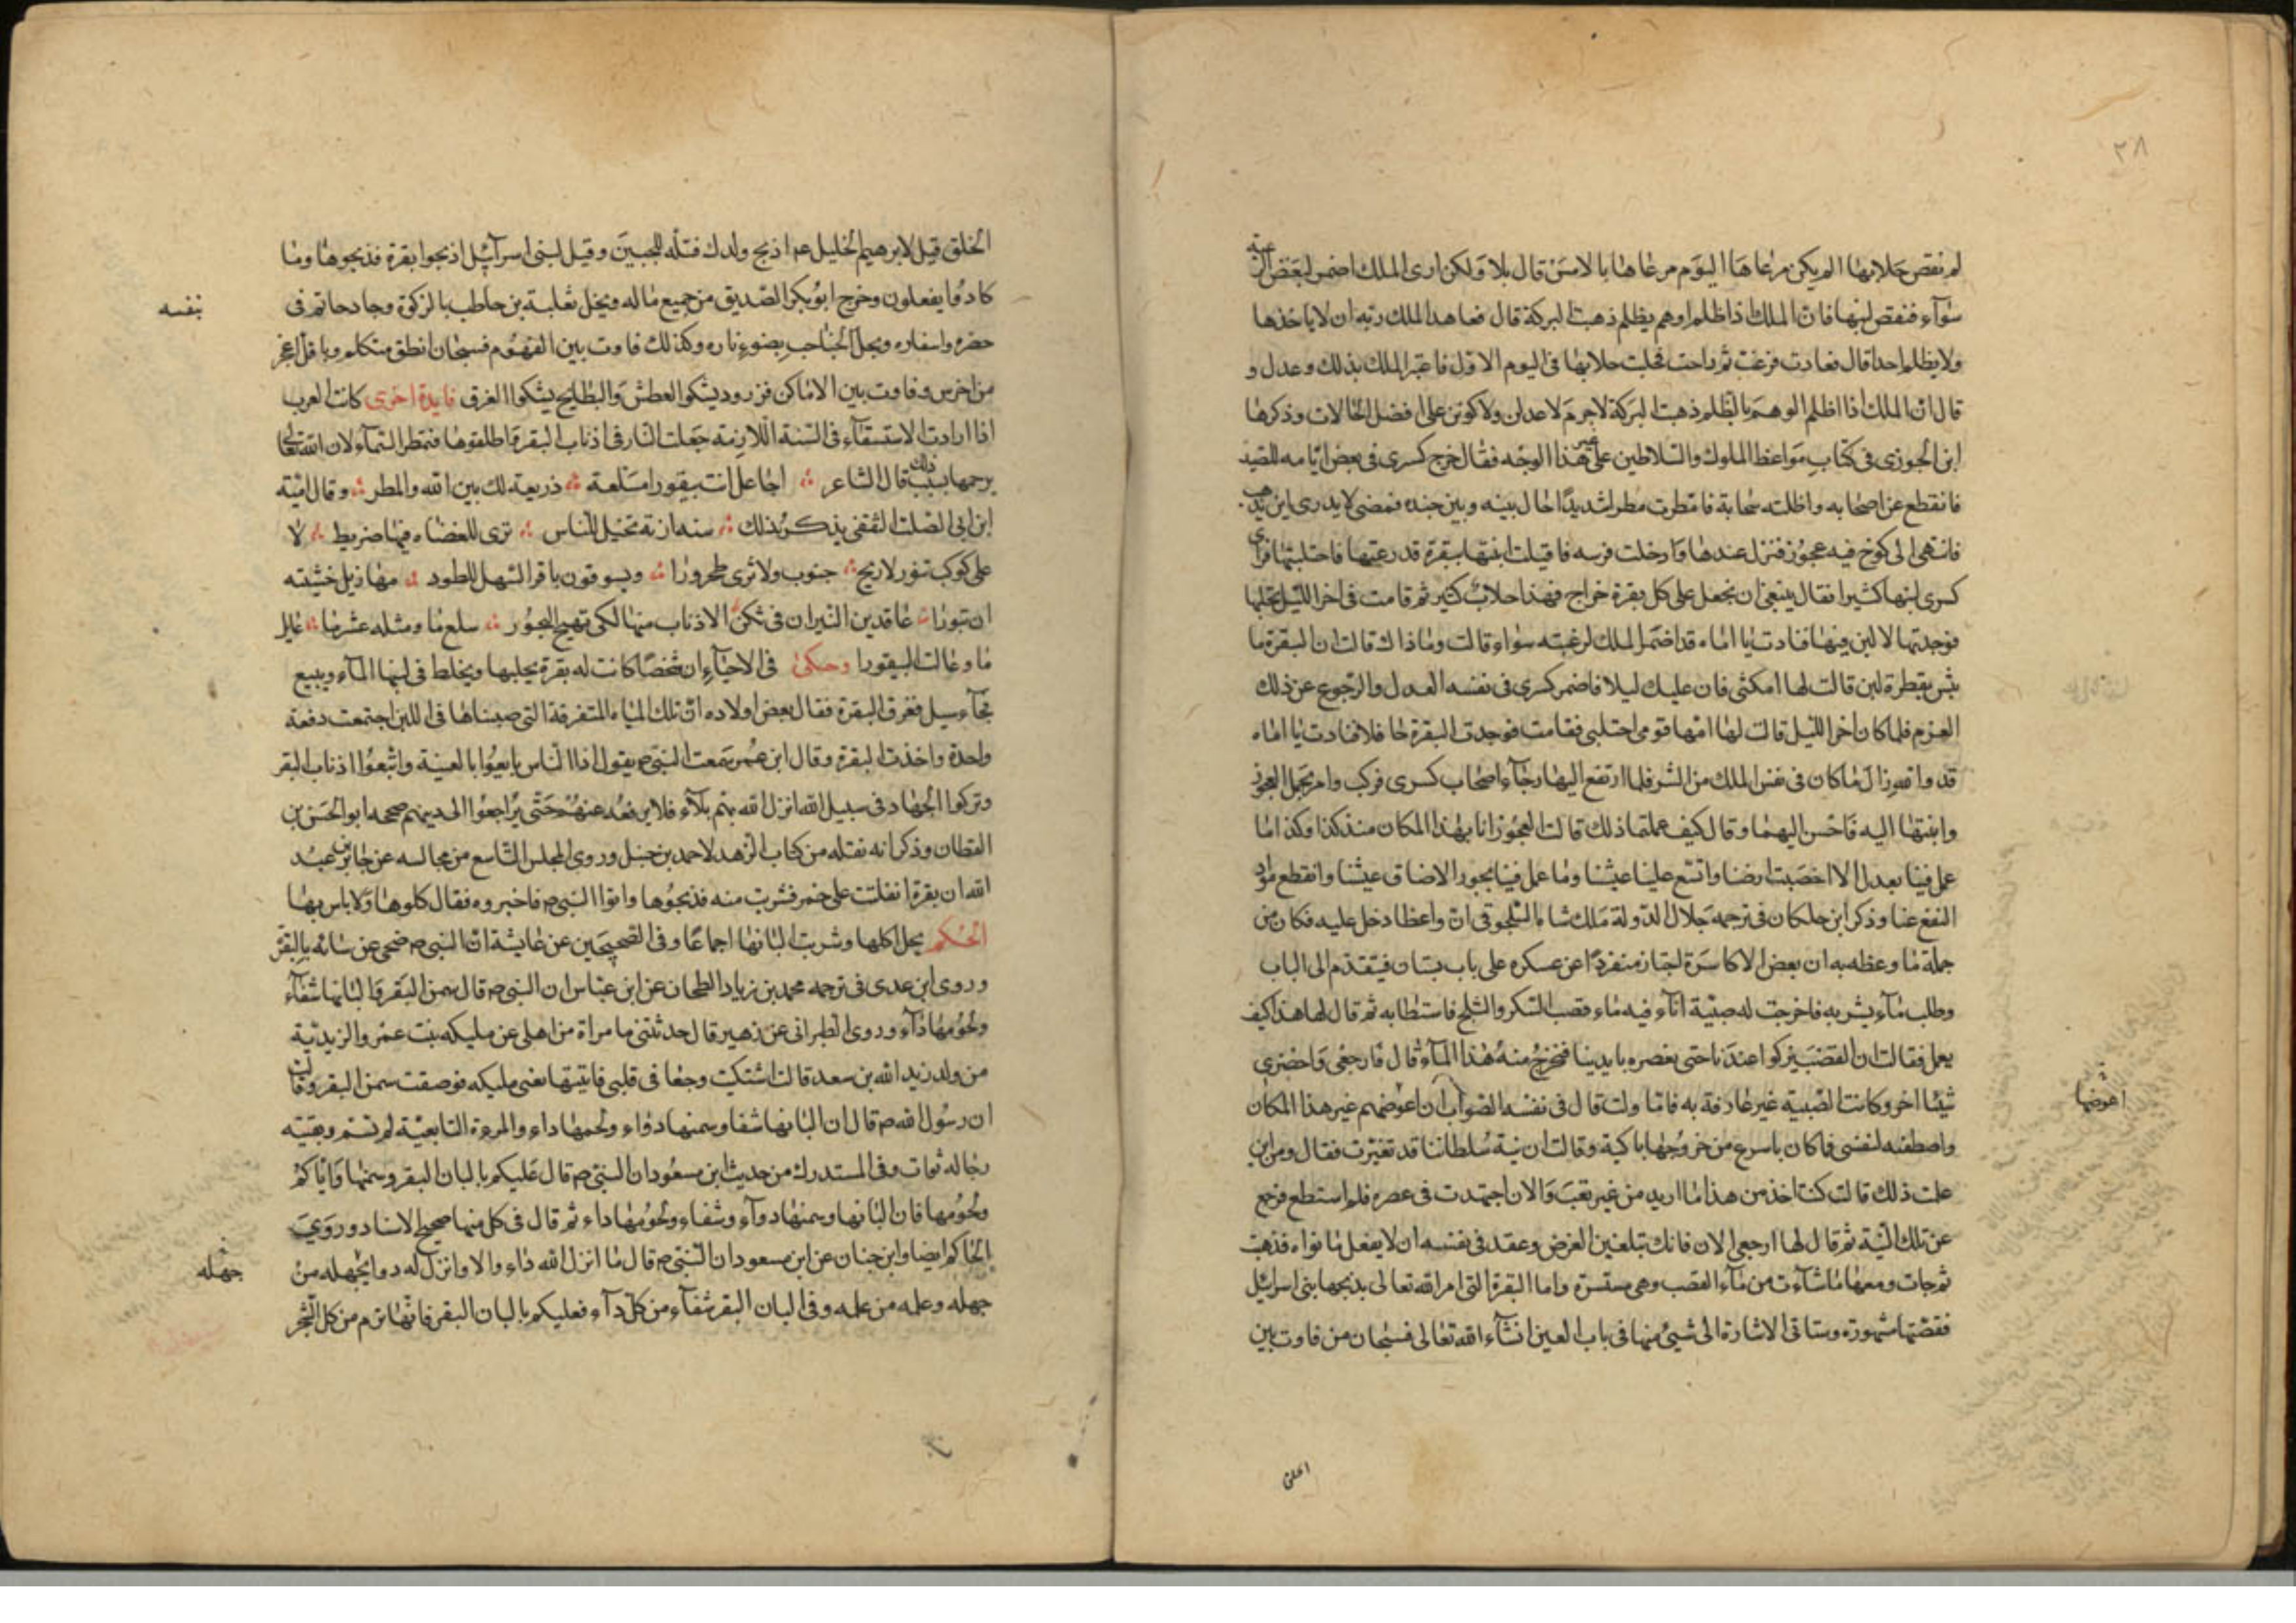 ٢٨
لم نقص حلابها الم يكن مرعاها اليوم مرعاها بالامس قال بلا ولكن ارى الملك اضمر لبعض رعيته
سوآء فنقص لبنها فان الملك اذا ظلم او هم بظلم ذهبت البركة قال فعاهد الملك ربه ان لا ياخذها
ولا يظلم احدا قال فعادت فرعت ثم راحت فحلبت حلابها فى اليوم الاول فاعتبر الملك بذلك وعدل و
قال ان الملك اذا ظلم او هم بالظلم ذهبت البركة لا جرم لاعدلن ولاكونن على افضل الحالات وذكرها
ابن الجوزى فى كتاب مواعظ الملوك والسلاطين على غير هذا الوجه فقال خرج كسرى فى بعض ايامه للصيد
فانقطع عن اصحابه واظلته سحابة فامطرت مطرا شديدا حال بينه وبين جنده فمضى لا يدرى اين يذهب
فانتهى الى كوخ فيه عجوز فنزل عندها وادخلت فرسه فاقبلت ابنتها ببقرة قد رعتها فاحتلبتها فراى
كسرى لبنها كثيرا فقال ينبغى ان نجعل على كل بقرة خراج فهذا حلاب كثير ثم قامت فى اخر الليل لتحلبها
فوجدتها لا لبن فيها فنادت يا اماه قد اضمر الملك لرعيته سواء قالت وما ذاك قالت ان البقرة ما
تبز بقطرة لبن قالت لها امكثى فان عليك ليلا فاضمر كسرى فى نفسه العدل والرجوع عن ذلك
العزم فلما كان اخر الليل قالت لها امها قومى احتلبى فقامت فوجدت البقرة حافلا فنادت يا اماه
قد والله زال ما كان فى نفس الملك من الشر فلما ارتفع النهار جآء اصحاب كسرى فركب وامر بحمل العجوز
وابنتها اليه فاحسن اليهما وقال كيف علمتما ذلك قالت العجوز انا بهذا المكان منذ كذا وكذا ما
عمل فينا بعدل الا اخصبت ارضنا واتسع علينا عيشنا وما عمل فينا بجور الا ضاق عيشنا وانقطع مواد
النفع عنا وذكر ابن خلكان فى ترجمة جلال الدولة ملك شاه السلجوقى ان واعظا دخل عليه فكان من
جملة ما وعظه به ان بعض الاكاسرة اجتاز منفردا عن عسكره على باب بستان فتقدم الى الباب
وطلب مآء يشربه فاخرجت له صبية انآء فيه ماء قصب السكر والثلج فاستطابه ثم قال لها هذا كيف
يعمل فقالت ان القصب يزكوا عندنا حتى نعصره بايدينا فيخرج منه هذا المآء قال فارجعى واحضرى
شيئا اخر وكانت الصبية غير عارفة به فلما ولت قال فى نفسه الصواب ان اعوضهم غير هذا المكان
واصطفيه لنفسى فما كان باسرع من خروجها باكية وقالت ان نية سلطاننا قد تغيرت فقال ومن اين
علمت ذلك قالت كنت اخذ من هذا ما اريد من غير تعب والان اجتهدت فى عصره فلم استطع فرجع
عن تلك النية ثم قال لها ارجعى الان فانك تبلغين الغرض وعقد فى نفسه ان لا يفعل ما نواه فذهبت
ثم جات ومعها ما شآءت من مآء القصب وهى مستبشرة واما البقرة التى امر الله تعالى بذبحها بنى اسرائيل
فقصتها مشهورة وستاتى الاشارة الى شيئ منها فى باب العين انشآء الله تعالى فسبحان من فاوت بين
اعوضها
الخلق
الخلق قيل لابرهيم الخليل عم اذبح ولدك فتله للجبين وقيل لبنى اسرآئيل اذبحوا بقرة فذبحوها وما
كادوا يفعلون وخرج ابو بكر الصديق من جميع ماله وبخل ثعلبة بن حاطب بالزكوة وجاد حاتم فى
حضره واسفاره وبخل الحباحب بضوء ناره وكذلك فاوت بين الفهوم فسبحان انطق متكلم وباقل اعجز
من اخرس وفاوت بين الاماكن فزرود يشكو العطش والبطايح يشكوا الغرق فايدة اخرى كانت العرب
اذا ارادت الاستسقآء فى السنة اللازمة جعلت النار فى اذناب البقر واطلقوها فتمطر السمآء لان الله تعالى
يرحمها بسبب ذلك قال الشاعر اجاعل انت بيقورا مسلعة ذريعة لك بين الله والمطر وقال امية
ابن ابى الصلت الثقفى يذكر بذلك سنه ازمة تخيل للناس ترى للعضاه فيها ضريط لا
على كوكب تنور لا ريح جنوب ولا ترى طحرورا ويسوقون باقر السهل للطود مهازيل خشية
ان تبورا عاقدين النيران فى ثكن الاذناب منها لكى تهيج البحور سلع ما ومثله عشر ما عايل
ما وعالت البيقورا وحكى فى الاحيآء ان شخصا كانت له بقرة يحلبها ويخلط فى لبنها المآء ويبيع
فجآء سيل فغرق البقرة فقال بعض اولاده ان تلك المياه المتفرقة التى صببناها فى اللبن اجتمعت دفعة
واحدة واخذت البقرة وقال ابن عمر سمعت النبى ص يقول اذا الناس بايعوا بالعينة واتبعوا اذناب البقر
وتركوا الجهاد فى سبيل الله انزل الله بهم بلآء فلا يرفعه عنهم حتى يراجعوا الى دينهم صححه ابو الحسن بن
القطان وذكر انه نقله من كتاب الزهد لاحمد بن حنبل وروى المجلس التاسع من مجالسه عن جابر بن عبد
الله ان بقرة انفلتت على خمر فشربت منه فذبحوها واتوا النبى ص فاخبروه فقال كلوها ولا باس بها
الحكم يحل اكلها وشرب البانها اجماعا وفى الصحيحين عن عايشة ان النبى ص ضحى عن نسائه بالبقر
وروى ابن عدى فى ترجمه محمد بن زياد الطحان عن ابن عباس ان النبى ص قال سمن البقر والبانها شفآء
ولحومها دآء وروى الطبرانى عن زهير قال حدثتنى امراة من اهلى عن مليكه بنت عمر والزيدية
من ولد زيد الله بن سعد قالت اشتكيت وجعا فى قلبى فاتيتها يعنى مليكه فوصفت سمن البقر وقالت
ان رسول الله ص قال ان البانها شفا وسمنها دوآء ولحمها داء والمرءة التابعية لم تسم وبقيته
رجاله ثقات وفى المستدرك من حديث ابن مسعود ان النبى ص قال عليكم بالبان البقر وسمنها واياكم
ولحومها فان البانها وسمنها دوآء وشفاء ولحومها داء ثم قال فى كل منها صحيح الاسناد وروى
الحاكم ايضا وابن حبان عن ابن مسعود ان النبى ص قال ما انزل الله داء والا وانزل له دوا يجهله من
جهله وعلمه من علمه وفى البان البقر شفآء من كل دآء فعليكم بالبان البقر فانها ترم من كل الشجر
بنفسه
جهله